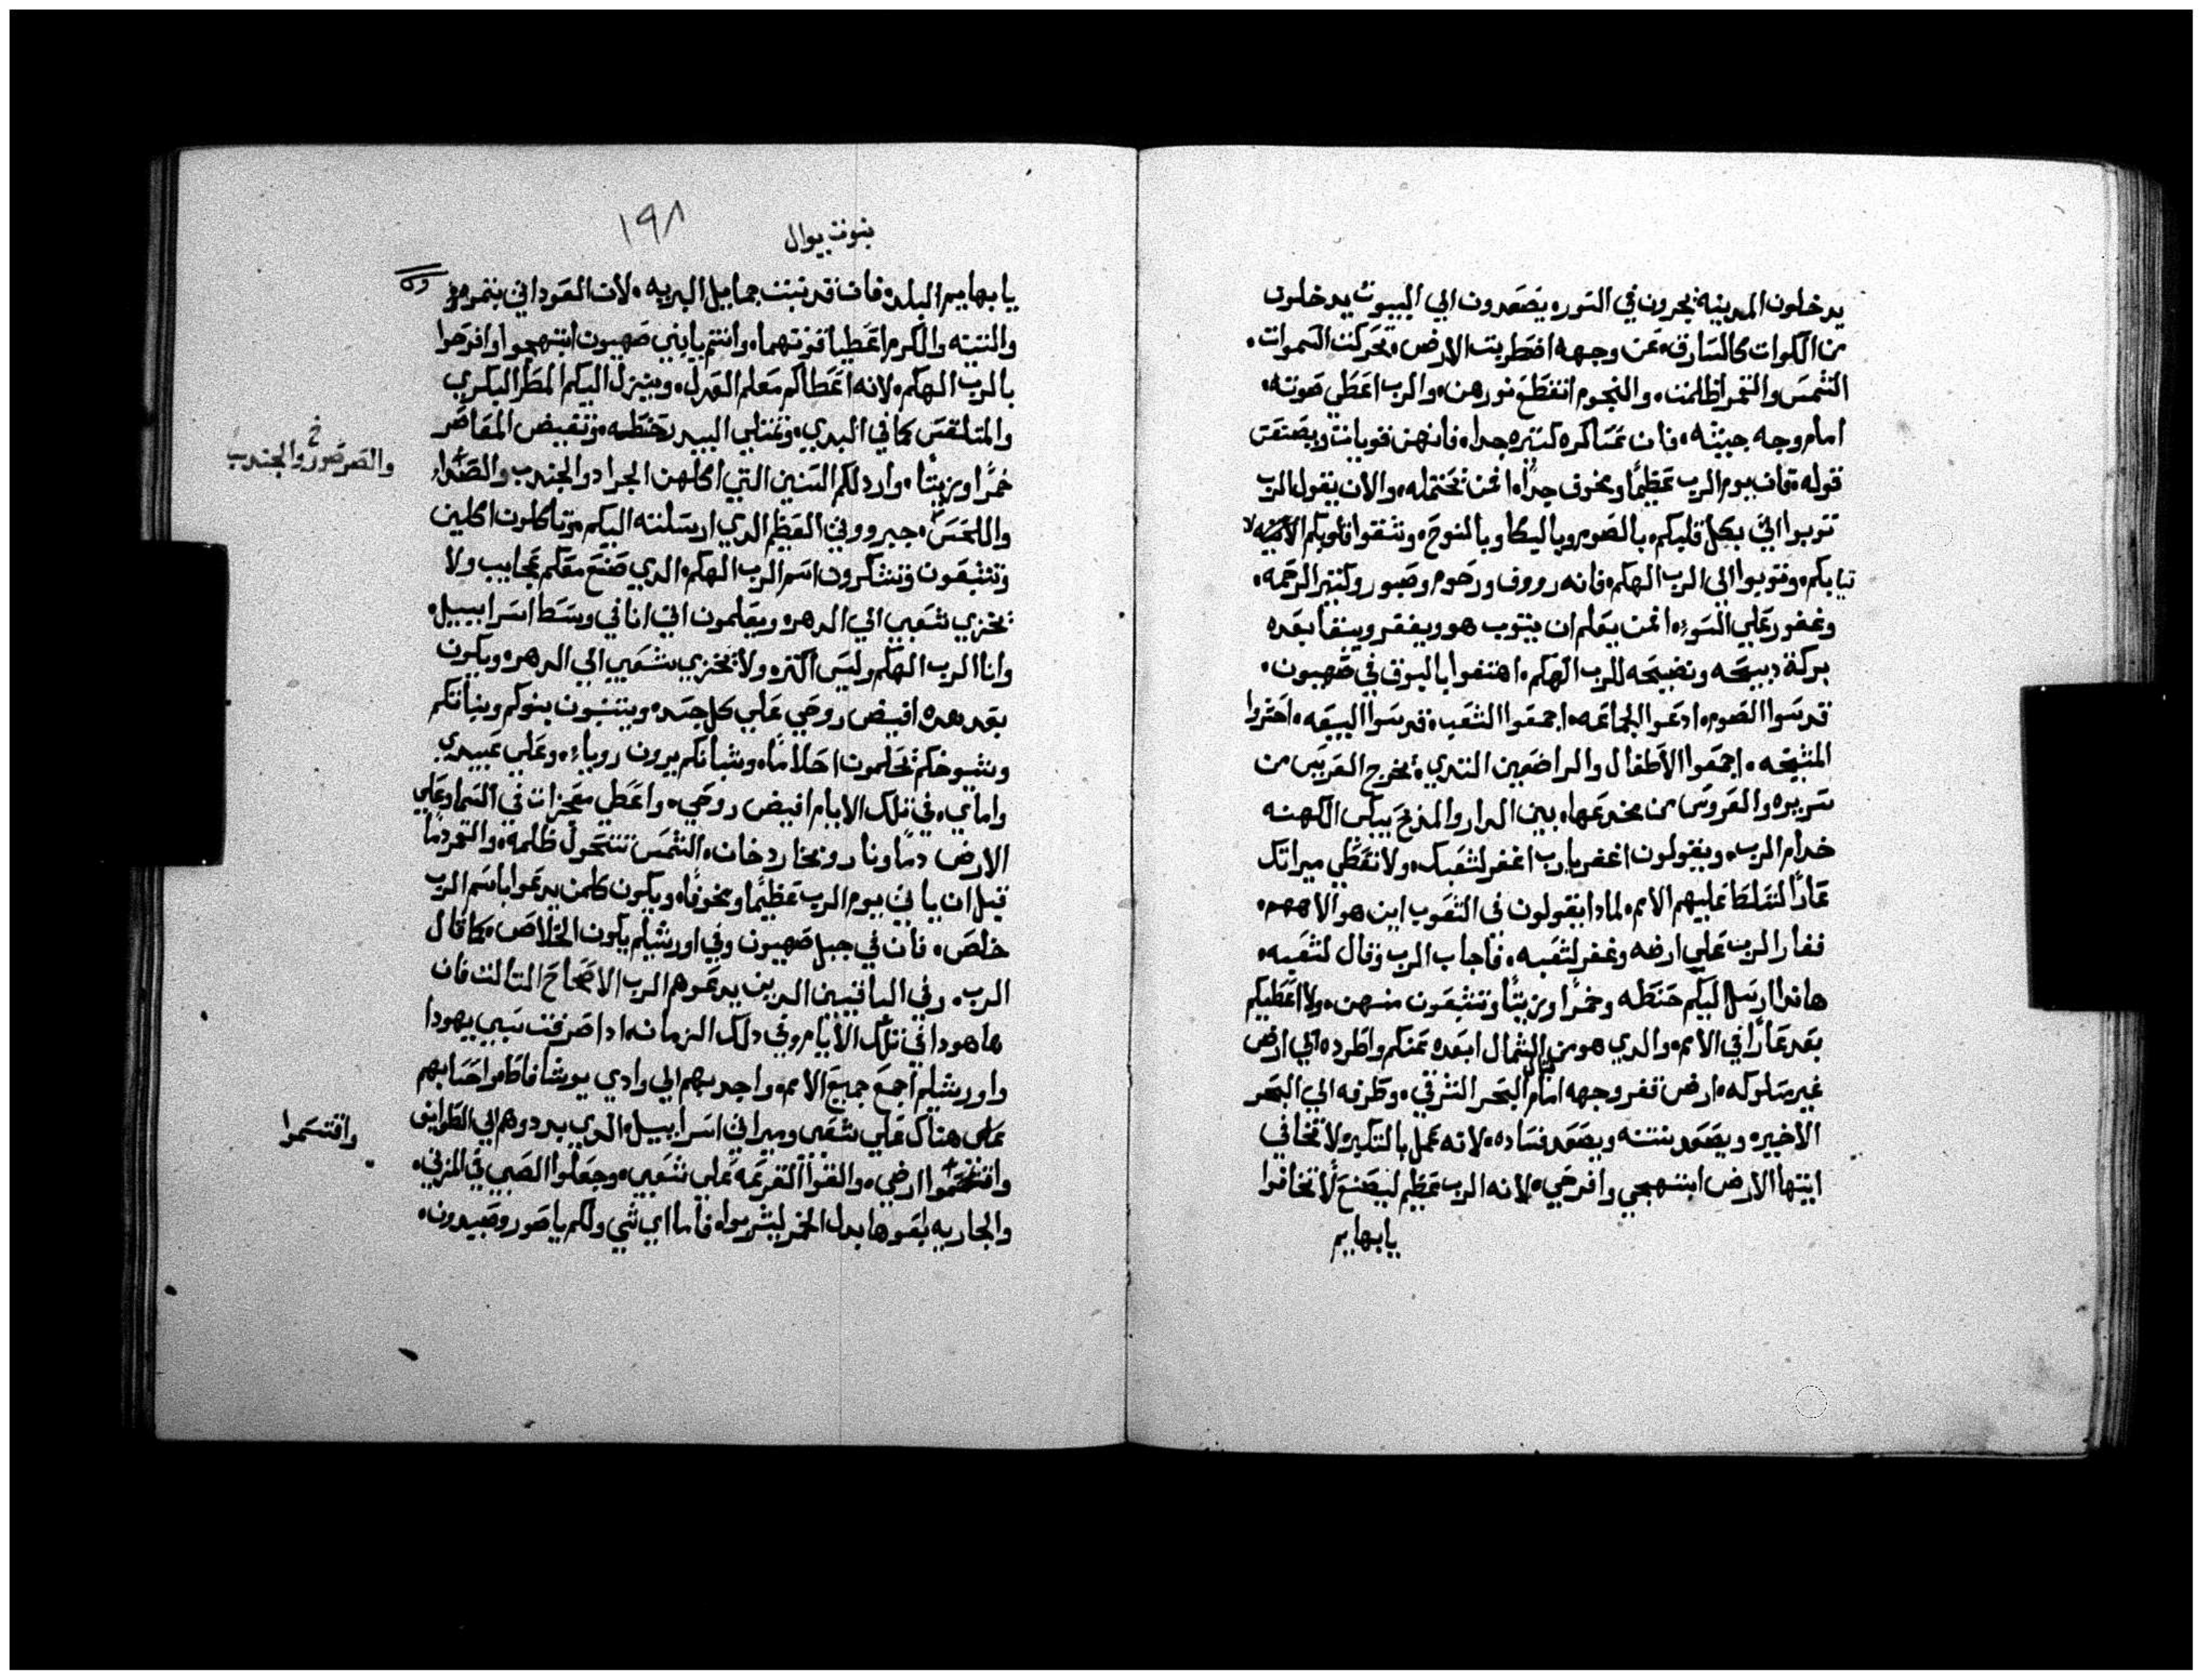 يدخلون المدينة يجرون في السوره يصعدون الي البيوت يدخلون
من الكوات كالسارق، عن وجهه اضطربت الارض، تحركت السموات،
الشمس والقمر اظلمت، والنجوم انقطع نورهن، والرب اعطي صوته،
امام وجه جيشه، فان عساكره كثيره جدا، فانهن قويات ويصنعن
قوله، فان يوم الرب عظيمًا ومخوف جدًا، فمن يحتمله، والان يقول الرب
توبوا اليّ بكل قلبكم، بالصوم وبالبكا وبالنوح، وشقوا قلوبكم لا
تيابكم، وتوبوا الي الرب الهكم، فانه رووف ورحوم وصبور وكثير الرحمه،
وغفور علي السوء، فمن يعلم ان يتوب هو ويغفر ويبقا بعده
بركة دبيحه ونضيحه للرب الهكم، اهتفوا بالبوق في صهيون،
قدسوا الصوم، ادعوا الجماعه، اجمعوا الشعب، قدسوا البيعه، احشروا
المشيخه، اجمعوا الاطفال والراضعين التدي، يخرج العريس من
سريره والعروس من مخدعها، بين الدار والمذبح يبكي الكهنه
خدام الرب، ويقولون اغفر يارب اغفر لشعبك، ولا تعطي ميراتك
عارًا لتسلط عليهم الامم، لمادا يقولون في الشعوب اين هو الاههم،
فغار الرب علي ارضه وغفر لشعبه، فاجاب الرب وقال لشعبه،
هاندا ارسل اليكم حنطه وخمرًا وزيتًا وتشبعون منهن، ولا اعطيكم
بعد عارًا في الامم، والدي هو من الشمال ابعده عنكم واطرده الي ارض
غير مسلوكه، ارض قفر وجهه امام البحر الشرقي، وطرفه الي البحر
الاخير، ويصعد نتنه ويصعد فساده، لانه عمل بالتكبر، لا تخافي
ايتها الارض ابتهجي وافرحي، لانه الرب عظم ليصنع، لا تخافوا
يا بهايم
نبوت يوال
١٩٨
يا بهايم البلده، فان قد نبتت جمايل البريه، لان العود اتي بثمرته
والتينه والكرم اعطيا قوتهما، وانتم يا بني صهيون ابتهجوا وافرحوا
بالرب الهكم، لانه اعطاكم معلم العدل، وينزل اليكم المطر البكري
والمتلقس كما في البدي، وتمتلي البيدر حنطه، وتفيض المعاصر
خمرًا وزيتًا، وارد لكم السنين التي اكلهن الجراد والجندب
واللحس، جبروتي العظيم الدي ارسلته اليكم، وتاكلون اكلين
وتشبعون وتشكرون اسم الرب الهكم، الدي صنع معكم عجايب ولا
يخزي شعبي الي الدهر، ويعلمون اني انا في وسط اسراييل،
وانا الرب الهكم وليس اكثر، ولا يخزي شعبي الي الدهر، ويكون
بعد هده افيض روحي علي كل جسد، ويتنبون بنوكم وبناتكم
وشيوخكم يحلمون احلامًا، وشبانكم يرون روياء، وعلي عبيدي
واماي، في تلك الايام افيض روحي، واعطي معجزات في السما وعلي
الارض دمًا ونار وبخار دخان، الشمس تتحول ظلمه، والقمر دمًا
قبل ان ياتي يوم الرب عظيمًا ومخوفًا، ويكون كلمن يدعوا باسم الرب
خلص، فان في جبل صهيون وفي اورشيلم يكون الخلاص، كما قال
الرب، وفي الباقيين الدين يدعوهم الرب الاصحاح التالت فان
هاهودا في تلك الايام وفي دلك الزمان، ادا صرفت سبي يهودا
واورشيلم اجمع جميع الامم، واجديهم الي وادي يوشافاط، واحاسبهم
هناك علي شعبي وميراتي اسراييل، الدي بددوهم الي الطوايف
ارضي، والقوا القرعه علي شعبي، وجعلوا الصبي في المزني،
والجاريه بعوها بدل الخمر ليشربوا، فاما اي شي ولكم يا صور وصيدون،
والصرصور والجندب
واقتسموا